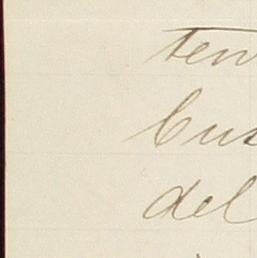 ten
bus
del